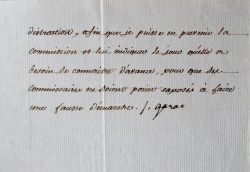 distraction, afin que je puisse en prévenir la
commission et lui indiquer le jour qu'elle a
besoin de connaitre d'avance, pour que des
commissaires ne soient point exposés à faire
une fausse démarche. /.